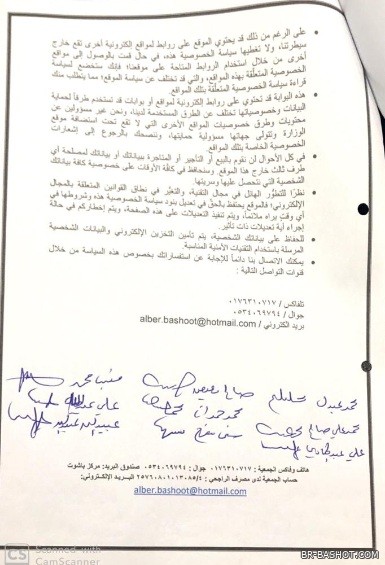 على الرغم من ذلك قد يحتوي الموقع على روابط لمواقع إلكترونية أخرى تقع خارج
سيطرتنا، ولا تغطيها سياسة الخصوصية هذه، في حال قمت بالوصول إلى مواقع
أخرى من خلال استخدام الروابط المتاحة على موقعنا؛ فإنك ستخضع لسياسة
الخصوصية المتعلقة بهذه المواقع، والتي قد تختلف عن سياسة الموقع؛ مما يتطلب منك
قراءة سياسة الخصوصية المتعلقة بتلك المواقع.
هذه البوابة قد تحتوي على روابط إلكترونية لمواقع أو بوابات قد تستخدم طرقاً لحماية
البيانات وخصوصياتها تختلف عن الطرق المستخدمة لدينا، ونحن غير مسؤولين عن
محتويات وطرق خصوصيات المواقع الأخرى التي لا تقع تحت استضافة موقع
الوزارة وتتولى جهاتها مسؤولية حمايتها، وننصحك بالرجوع إلى إشعارات
الخصوصية الخاصة بتلك المواقع.
في كل الأحوال لن نقوم بالبيع أو التأجير أو المتاجرة ببياناتك أو بياناتك لمصلحة أي
طرف ثالث خارج هذا الموقع. وسنحافظ في كافة الأوقات على خصوصية كافة بياناتك
الشخصية التي نتحصل عليها وسريتها.
نظراً للتطور الهائل في مجال التقنية، والتغير في نطاق القوانين المتعلقة بالمجال
الإلكتروني؛ فالموقع يحتفظ بالحق في تعديل بنود سياسة الخصوصية هذه وشروطها في
أي وقت يراه ملائماً، ويتم تنفيذ التعديلات على هذه الصفحة، ويتم إخطاركم في حالة
إجراء أية تعديلات ذات تأثير.
للحفاظ على بياناتك الشخصية، يتم تأمين التخزين الإلكتروني والبيانات الشخصية
المرسلة باستخدام التقنيات الأمنية المناسبة.
يمكنك الاتصال بنا دائماً للإجابة عن استفساراتك بخصوص هذه السياسة من خلال
قنوات التواصل التالية :
تلفاكس / ٠١٧٦٣١٠٧١٧
جوال / ٠٥٣٤٠٦٩٧٩٤
بريد الكتروني / alber.bashoot@hotmail.com
هاتف وفاكس الجمعية : ٠١٧٦٣١٠٧١٧ جوال : ٠٥٣٤٠٦٩٧٩٤ صندوق البريد: مركز باشوت
حساب الجمعية لدى مصرف الراجحي : البريد الإلكتروني:
alber.bashoot@hotmail.com
CS Scanned with
CamScanner
BR-BASHOT.COM